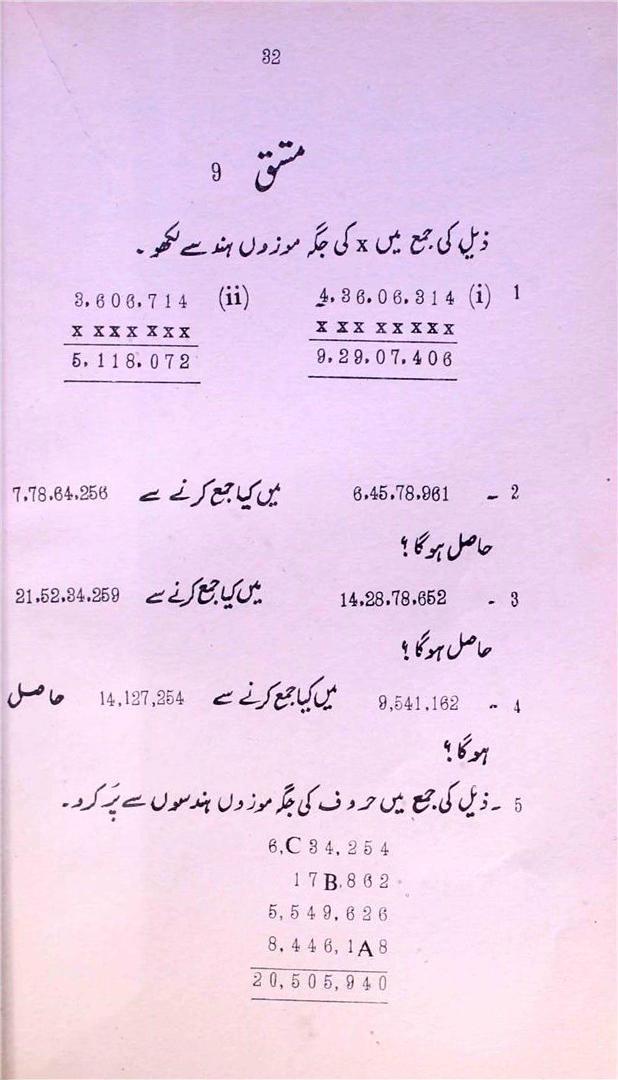 32
مشق 9
ذیل کی جمع میں x کی جگہ موزوں ہندسے لکھو۔
1 (i) 4,36,06,314 (ii) 3,606,714
x xx xx xxx x xxx xxx
9,29,07,406 5,118,072
2 ۔ 6,45,78,961 میں کیا جمع کرنے سے 7,78,64,256
حاصل ہوگا؟
3 ۔ 14,28,78,652 میں کیا جمع کرنے سے 21,52,34,259
حاصل ہوگا؟
4 ۔ 9,541,162 میں کیا جمع کرنے سے 14,127,254 حاصل
ہوگا؟
5 ۔ ذیل کی جمع میں حروف کی جگہ موزوں ہندسوں سے پُر کرو۔
6,C34,254
17B,862
5,549,626
8,446,1A8
20,505,940